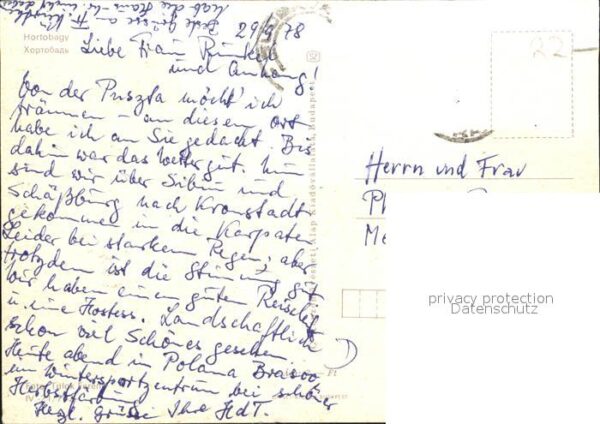 Hortobágy
Хортобадь
29/9 78
Liebe Frau Runkel
und Anhang!
Von der Puszta möcht' ich
träumen – an diesem Ort
habe ich an Sie gedacht. Bis
dahin war das Wetter gut. Nun
sind wir über Sibiu und
Schäßburg nach Kronstadt
gekommen in die Karpaten
Leider bei starkem Regen; aber
trotzdem ist die Stimmung gut
Wir haben einen guten Reiseleit
u. eine Hostess. Landschaftlich
schon viel Schönes gesehen
Heute abend in Poiana Brasov
ein Wintersportzentrum bei schöner
Herbstfärbung
Herzl. Grüsse Ihre HdT.
Herrn und Frau
Ph
Me
22
privacy protection
Datenschutz